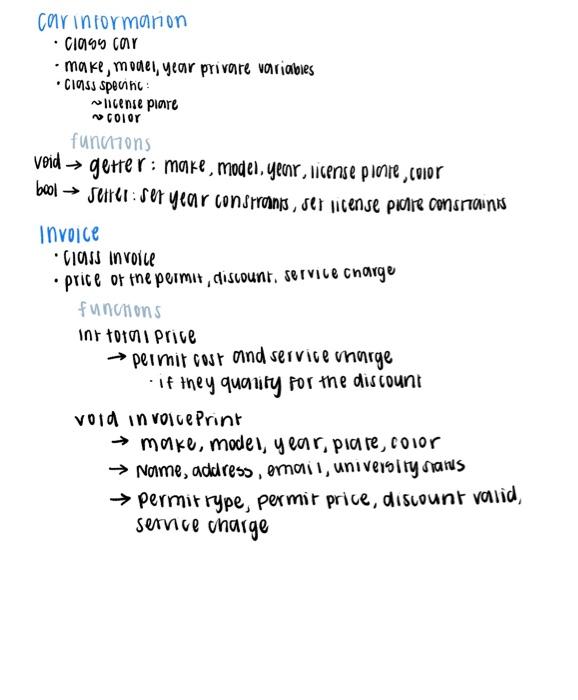 Car information
· Class car
· make, model, year private variables
· Class specific:
~license plate
~color
functions
void → getter: make, model, year, license plate, color
bool → setter: set year constraints, set license plate constraints
Invoice
· Class Invoice
· price of the permit, discount, service charge
functions
int total price
→ permit cost and service charge
· if they qualify for the discount
void invoicePrint
→ make, model, year, plate, color
→ Name, address, email, university status
→ permit type, permit price, discount valid,
service charge